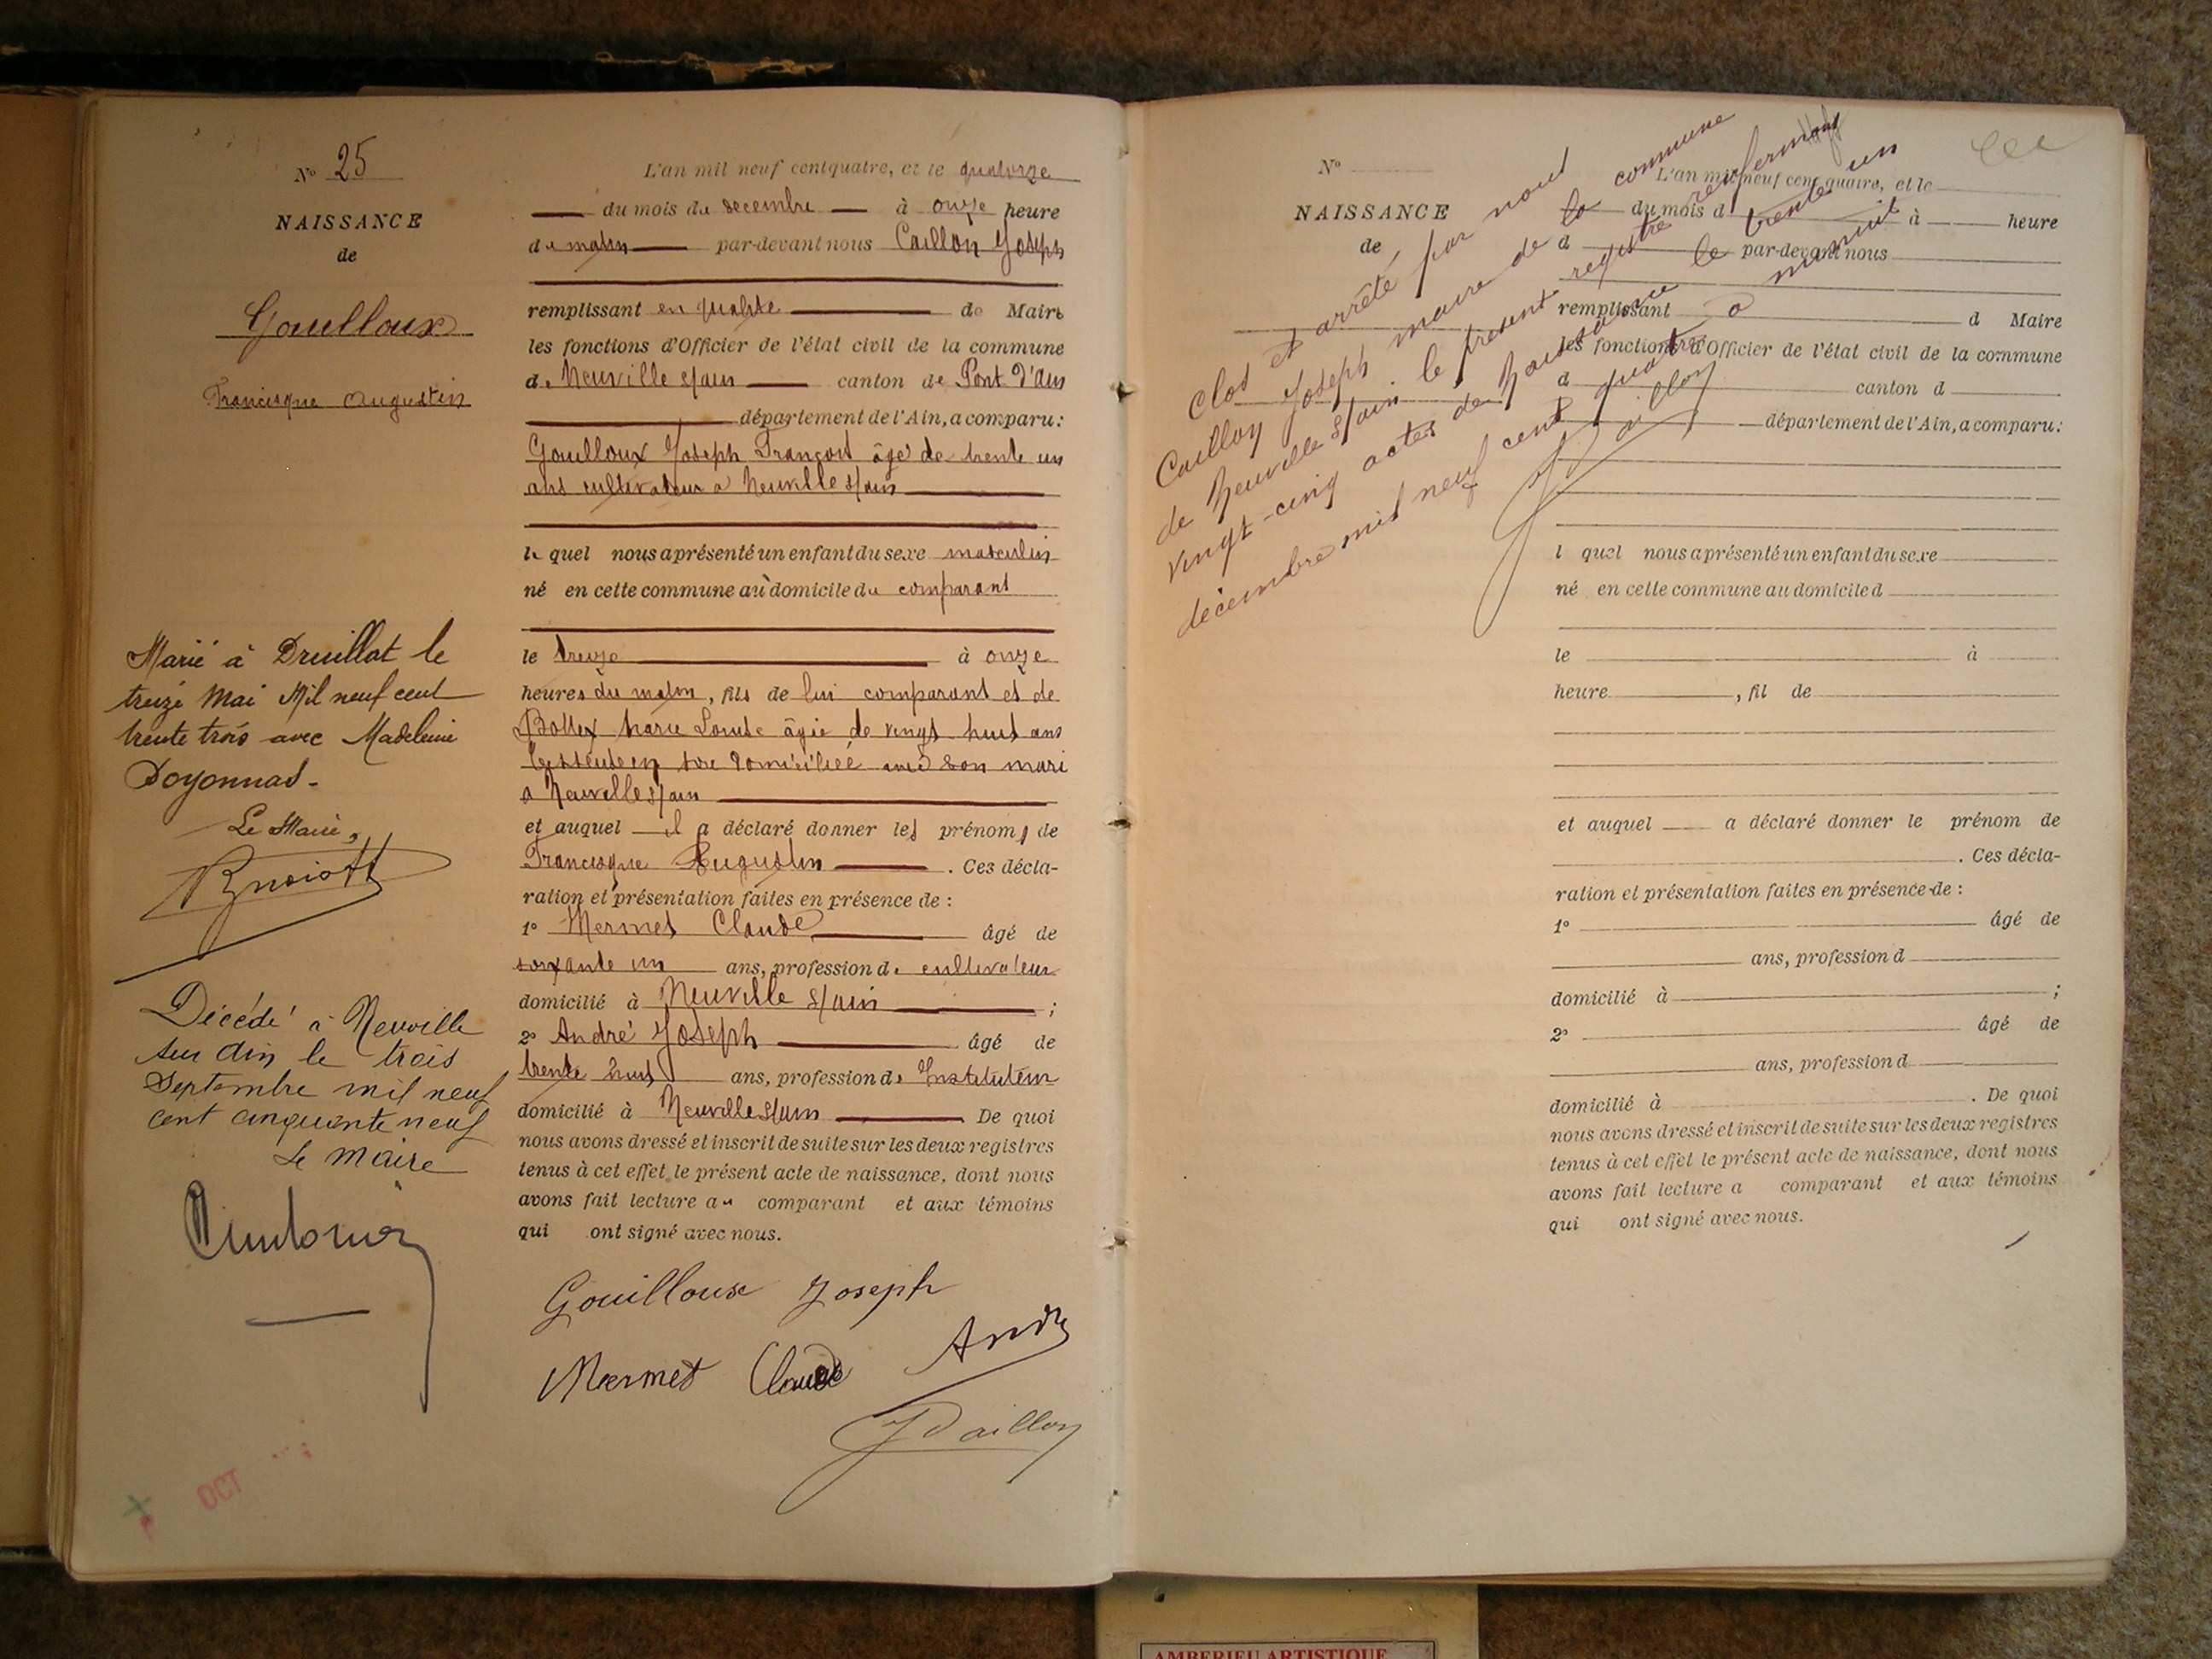 N° 25
NAISSANCE
de
Gouilloux
Francisque Augustin
Marié à Druillat le
treize Mai Mil neuf cent
trente trois avec Madeleine
Doyonnas.
Le Maire,
Décédé à Neuville
sur Ain le trois
Septembre mil neuf
cent cinquante neuf
Le Maire
OCT
L'an mil neuf cent quatre, et le quatorze
du mois de decembre à onze heure
du matin par-devant nous Caillon Joseph
remplissant en qualité de Maire
les fonctions d'Officier de l'état civil de la commune
de Neuville s/ain canton de Pont d'ain
département de l'Ain, a comparu:
Gouilloux Joseph François âgé de trente un
ans cultivateur a Neuville s/ain
le quel nous a présenté un enfant du sexe masculin
né en cette commune au domicile du comparant
le treize à onze
heures du matin, fils de lui comparant et de
Bollex Marie Louise âgée de vingt huit ans
domiciliée avec son mari
a Neuville s/ain
et auquel il a déclaré donner les prénoms de
Francisque Augustin. Ces décla-
ration et présentation faites en présence de :
1° Mermet Claude âgé de
soixante un ans, profession de cultivateur
domicilié à Neuville s/ain ;
2° André Joseph âgé de
trente huit ans, profession d' Instituteur
domicilié à Neuville s/ain De quoi
nous avons dressé et inscrit de suite sur les deux registres
tenus à cet effet le présent acte de naissance, dont nous
avons fait lecture au comparant et aux témoins
qui ont signé avec nous.
Gouilloux Joseph
André
Mermet Claude
J Caillon
Clos et arrêté par nous
Caillon Joseph maire de la commune
de Neuville s/ain. le présent registre renfermant
vingt-cinq actes de naissance le trente un
décembre mil neuf cent quatre à minuit
J Caillon
N°
NAISSANCE
de
L'an mil neuf cent quatre, et le
du mois d à heure
d par-devant nous
remplissant d Maire
les fonctions d'Officier de l'état civil de la commune
d canton d
département de l'Ain, a comparu:
l quel nous a présenté un enfant du sexe
né en cette commune au domicile d
le à
heure , fil de
et auquel a déclaré donner le prénom de
. Ces décla-
ration et présentation faites en présence de :
1° âgé de
ans, profession d
domicilié à ;
2° âgé de
ans, profession d
domicilié à . De quoi
nous avons dressé et inscrit de suite sur les deux registres
tenus à cet effet le présent acte de naissance, dont nous
avons fait lecture a comparant et aux témoins
qui ont signé avec nous.
AMBERIEU ARTISTIQUE